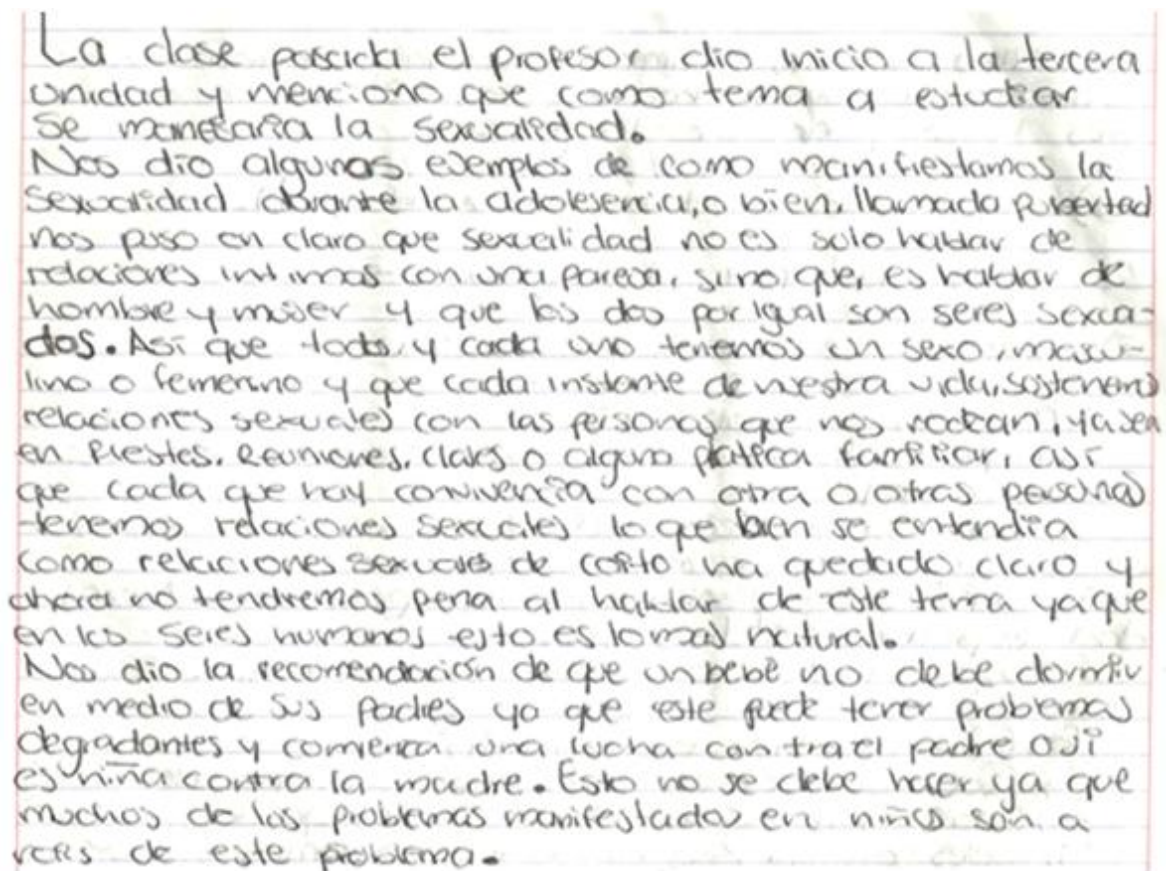 La clase pasada el profesor dio inicio a la tercera
unidad y menciono que como tema a estudiar
se manejaria la sexualidad.
Nos dio algunos ejemplos de como manifiestamos la
sexualidad durante la adolesencia, o bien, llamada pubertad
nos puso en claro que sexualidad no es solo hablar de
relaciones intimas con una pareja, sino que, es hablar de
hombre y mujer y que los dos por igual son seres sexua-
dos. Asi que todos y cada uno tenemos un sexo, mascu-
lino o femenino y que cada instante de nuestra vida, sostenemos
relaciones sexuales con las personas que nos rodean, ya sea
en fiestas, reuniones, clases o alguna platica familiar, asi
que cada que hay convivencia con otra o otras personas
tenemos relaciones sexuales lo que bien se entendia
como relaciones sexuales de coito ha quedado claro y
ahora no tendremos pena al hablar de este tema ya que
en los seres humanos esto es lo mas natural.
Nos dio la recomendación de que un bebé no debe dormir
en medio de sus padres ya que este puede tener problemas
degradantes y comienza una lucha contra el padre o si
es niña contra la madre. Esto no se debe hacer ya que
muchos de los problemas manifestados en niños son a
de este problema.